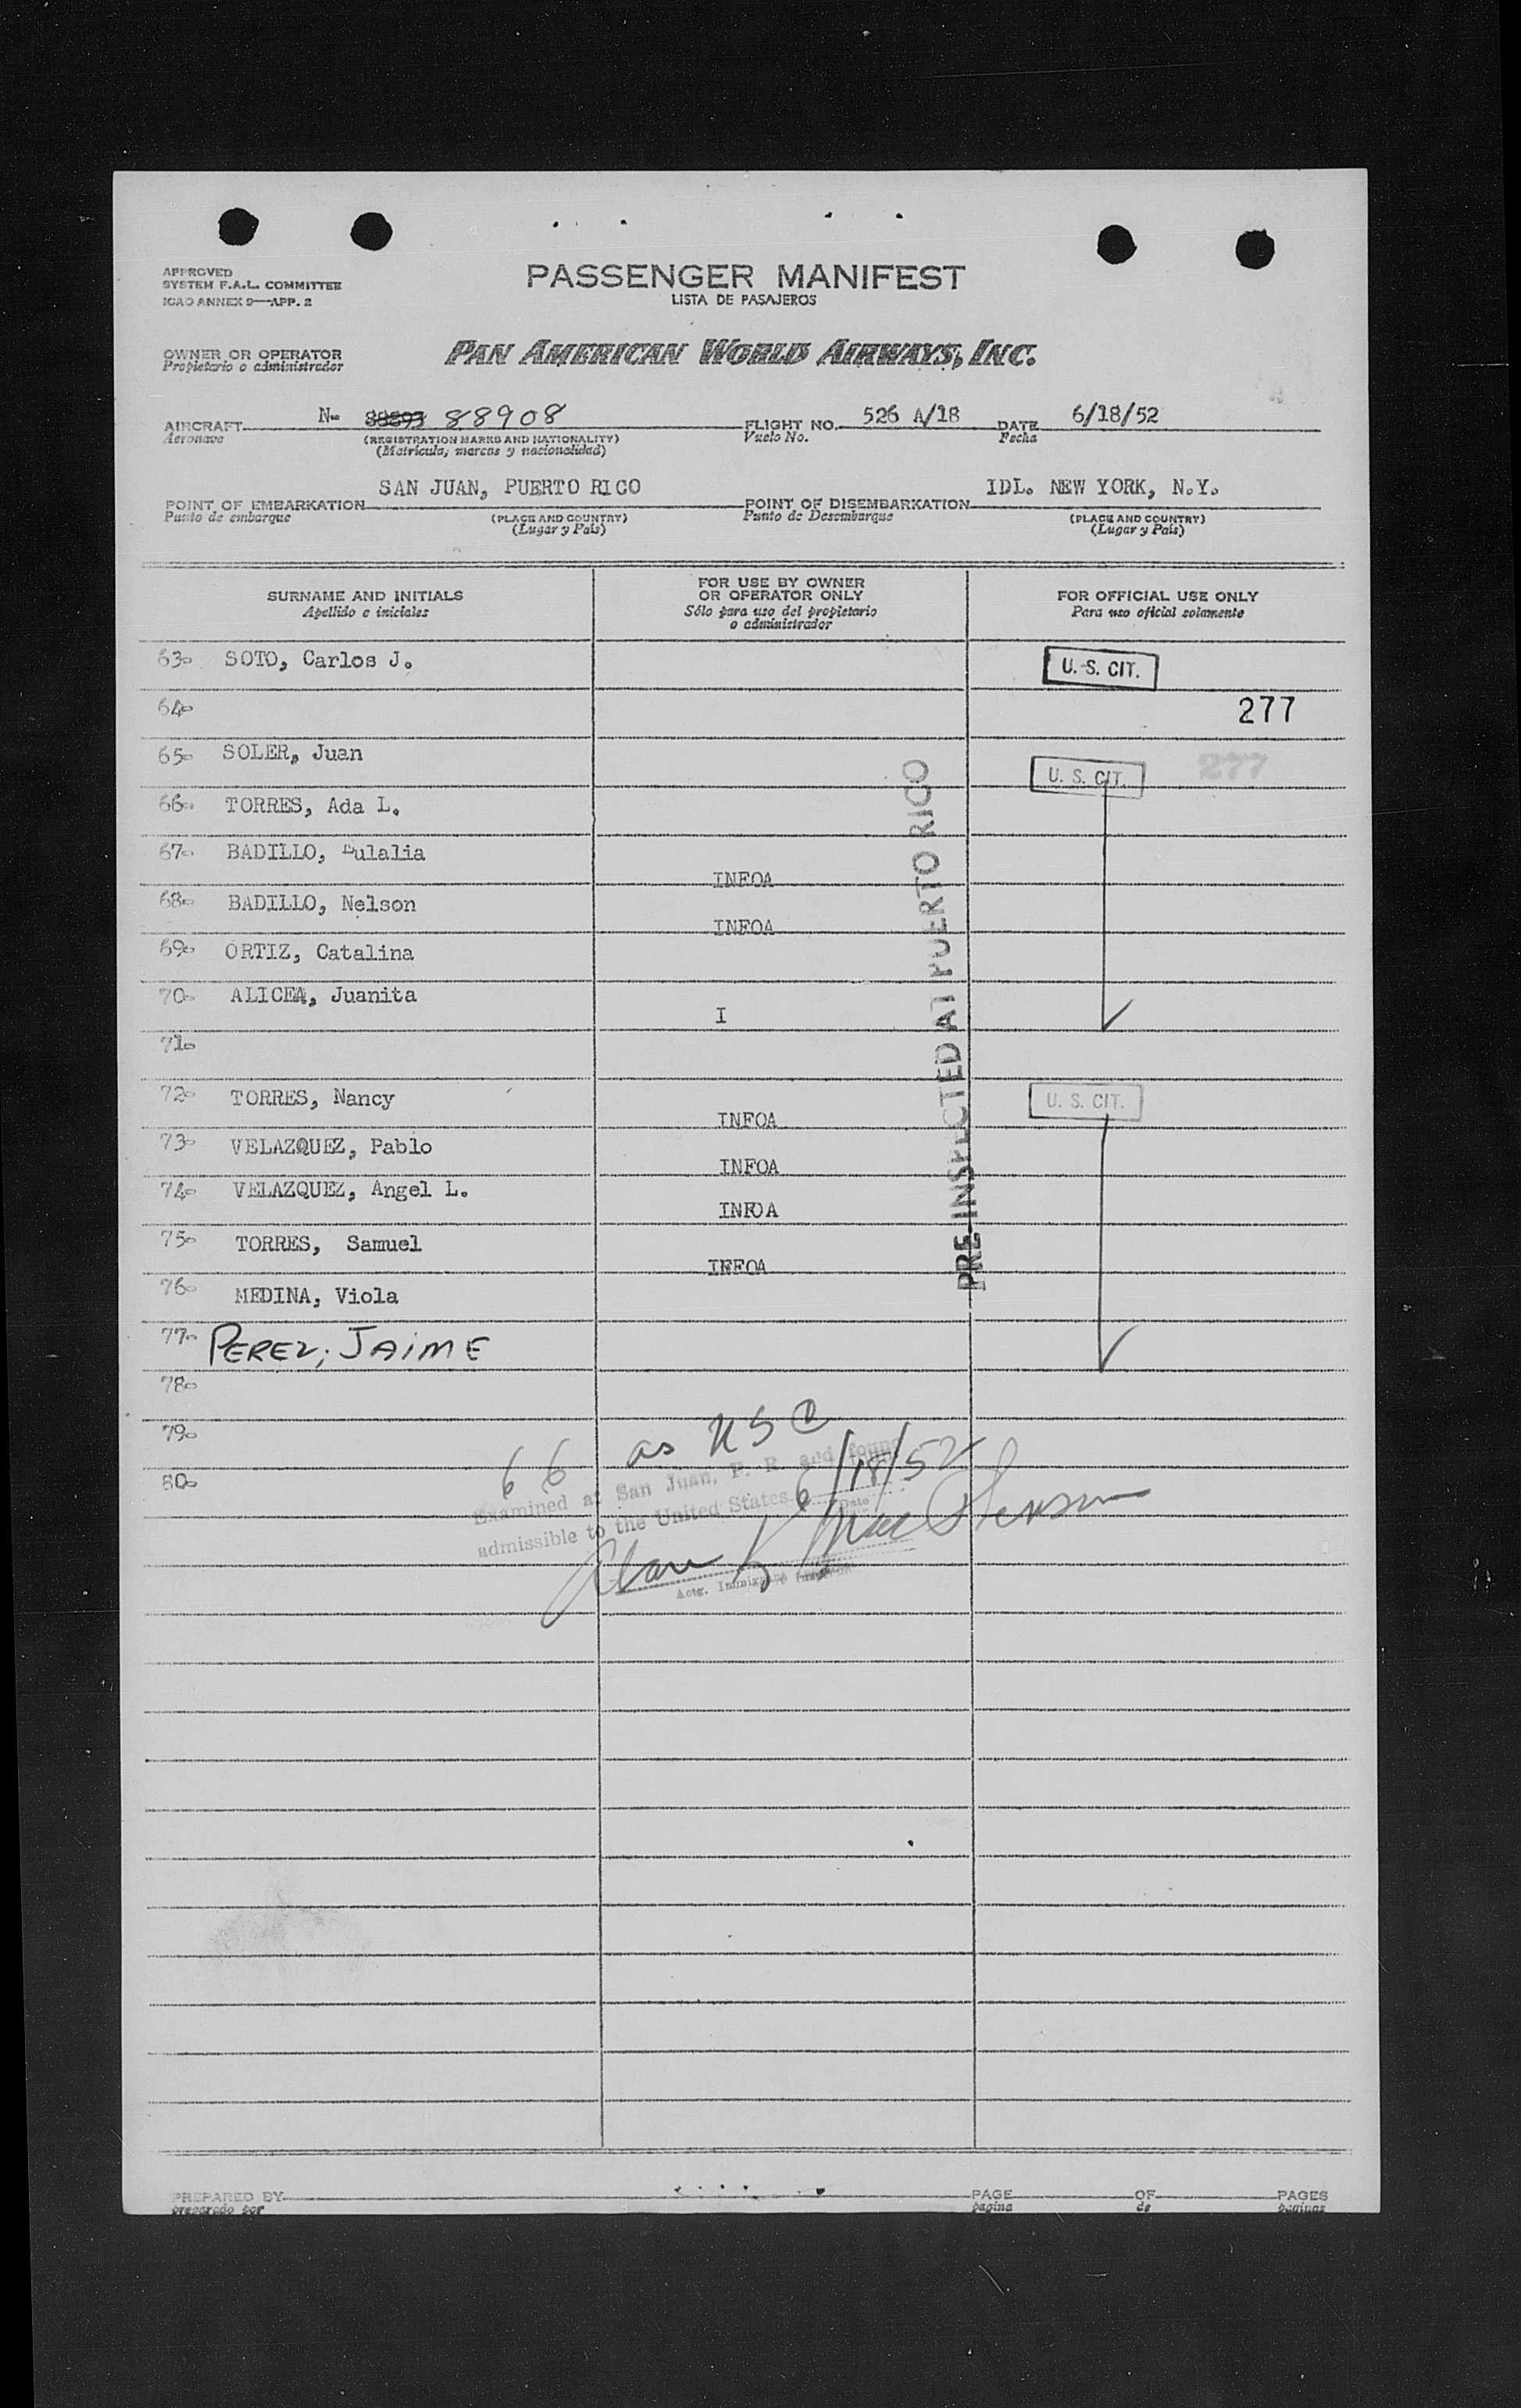 APPROVED
SYSTEM F.A.L. COMMITTEE
ICAO ANNEX 9—APP. 2
PASSENGER MANIFEST
LISTA DE PASAJEROS
OWNER OR OPERATOR
Propietario o administrador
PAN AMERICAN WORLD AIRWAYS, INC.
AIRCRAFT N- 88893 88908 FLIGHT NO. 526 A/18 DATE 6/18/52
Aeronave (REGISTRATION MARKS AND NATIONALITY) Vuelo No. Fecha
(Matrícula, marcas y nacionalidad)
POINT OF EMBARKATION SAN JUAN, PUERTO RICO POINT OF DISEMBARKATION IDL. NEW YORK, N.Y.
Punto de embarque (PLACE AND COUNTRY) Punto de Desembarque (PLACE AND COUNTRY)
(Lugar y País) (Lugar y País)
SURNAME AND INITIALS
Apellido e iniciales
FOR USE BY OWNER
OR OPERATOR ONLY
Sólo para uso del propietario
o administrador
FOR OFFICIAL USE ONLY
Para uso oficial solamente
63. SOTO, Carlos J. U. S. CIT.
64. 277
65. SOLER, Juan U. S. CIT. 277
66. TORRES, Ada L.
67. BADILLO, Eulalia INFOA
68. BADILLO, Nelson INFOA
69. ORTIZ, Catalina
70. ALICEA, Juanita I
71.
72. TORRES, Nancy INFOA U. S. CIT.
73. VELAZQUEZ, Pablo INFOA
74. VELAZQUEZ, Angel L. INFOA
75. TORRES, Samuel IFFOA
76. MEDINA, Viola
77. PEREZ, JAIME
78.
79.
80.
PRE-INSPECTED AT PUERTO RICO
66 as USC
Examined at San Juan, P. R. and found
admissible to the United States 6/18/52
Date
Actg. Immigrant Inspector
PREPARED BY PAGE OF PAGES
preparado por página de páginas